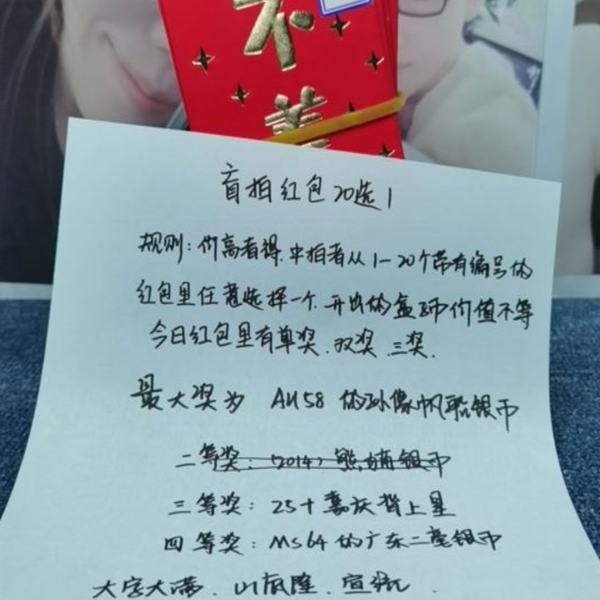 不
善
盲拍红包20选1
规则:价高者得.中拍者从1-20个带有编号的
红包里任意选择一个.开出的盒子币价值不等
今日红包里有单奖.双奖.三奖.
最大奖为 AU58 的孙像帆船银币
二等奖:(2014)熊猫银币
三等奖:25+嘉庆背上星
四等奖:MS64的广东二毫银币
大字大满.
宣统.